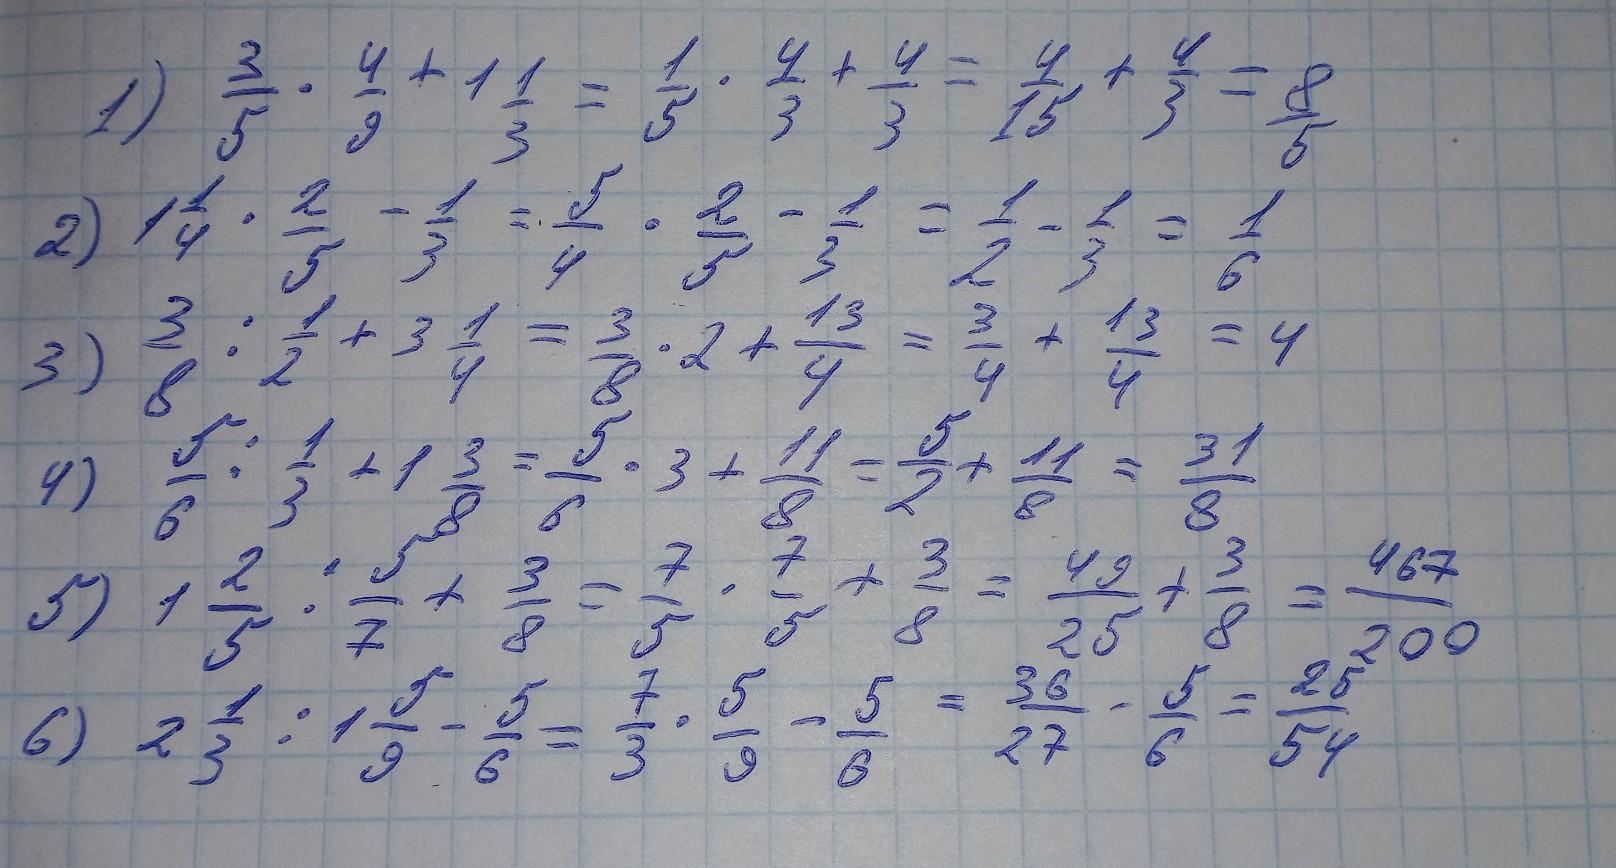 1) 3/5 · 4/9 + 1 1/3 = 1/5 · 4/3 + 4/3 = 4/15 + 4/3 = 8/5
2) 1 1/4 · 2/5 - 1/3 = 5/4 · 2/5 - 1/3 = 1/2 - 1/3 = 1/6
3) 3/8 : 1/2 + 3 1/4 = 3/8 · 2 + 13/4 = 3/4 + 13/4 = 4
4) 5/6 : 1/3 + 1 3/8 = 5/6 · 3 + 11/8 = 5/2 + 11/8 = 31/8
5) 1 2/5 : 5/7 + 3/8 = 7/5 · 7/5 + 3/8 = 49/25 + 3/8 = 467/200
6) 2 1/3 : 1 5/9 - 5/6 = 7/3 · 5/9 - 5/6 = 36/27 - 5/6 = 25/54